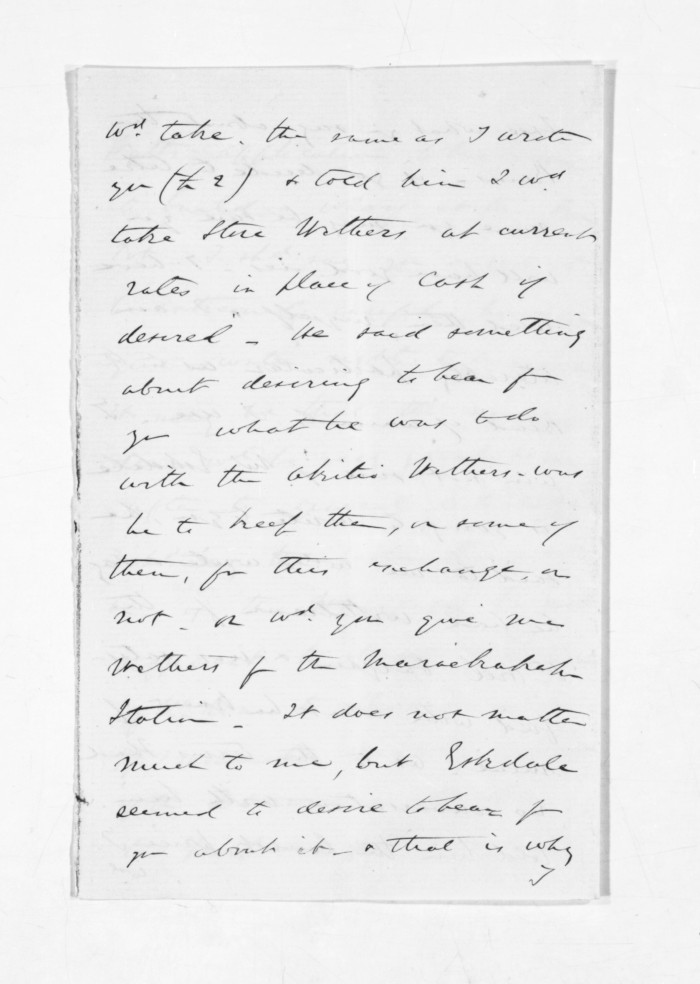 wd. take. the same as I wrote
you (the 2) & told him I wd
take Store Wethers at current
rates in place of Cash if
desired - He said something
about desiring to hear fr
you what he was to do
with the Akitio Wethers - was
he to keep them, or some of
them, for this exchange, or
not - or wd. you give me
Wethers f the Maraekakaho
Station - It does not matter
much to me, but Eskdale
seemed to desire to hear fr
you about it - & that is why
I